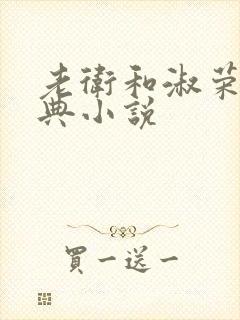 老衛和淑荣
典小说
買一送一